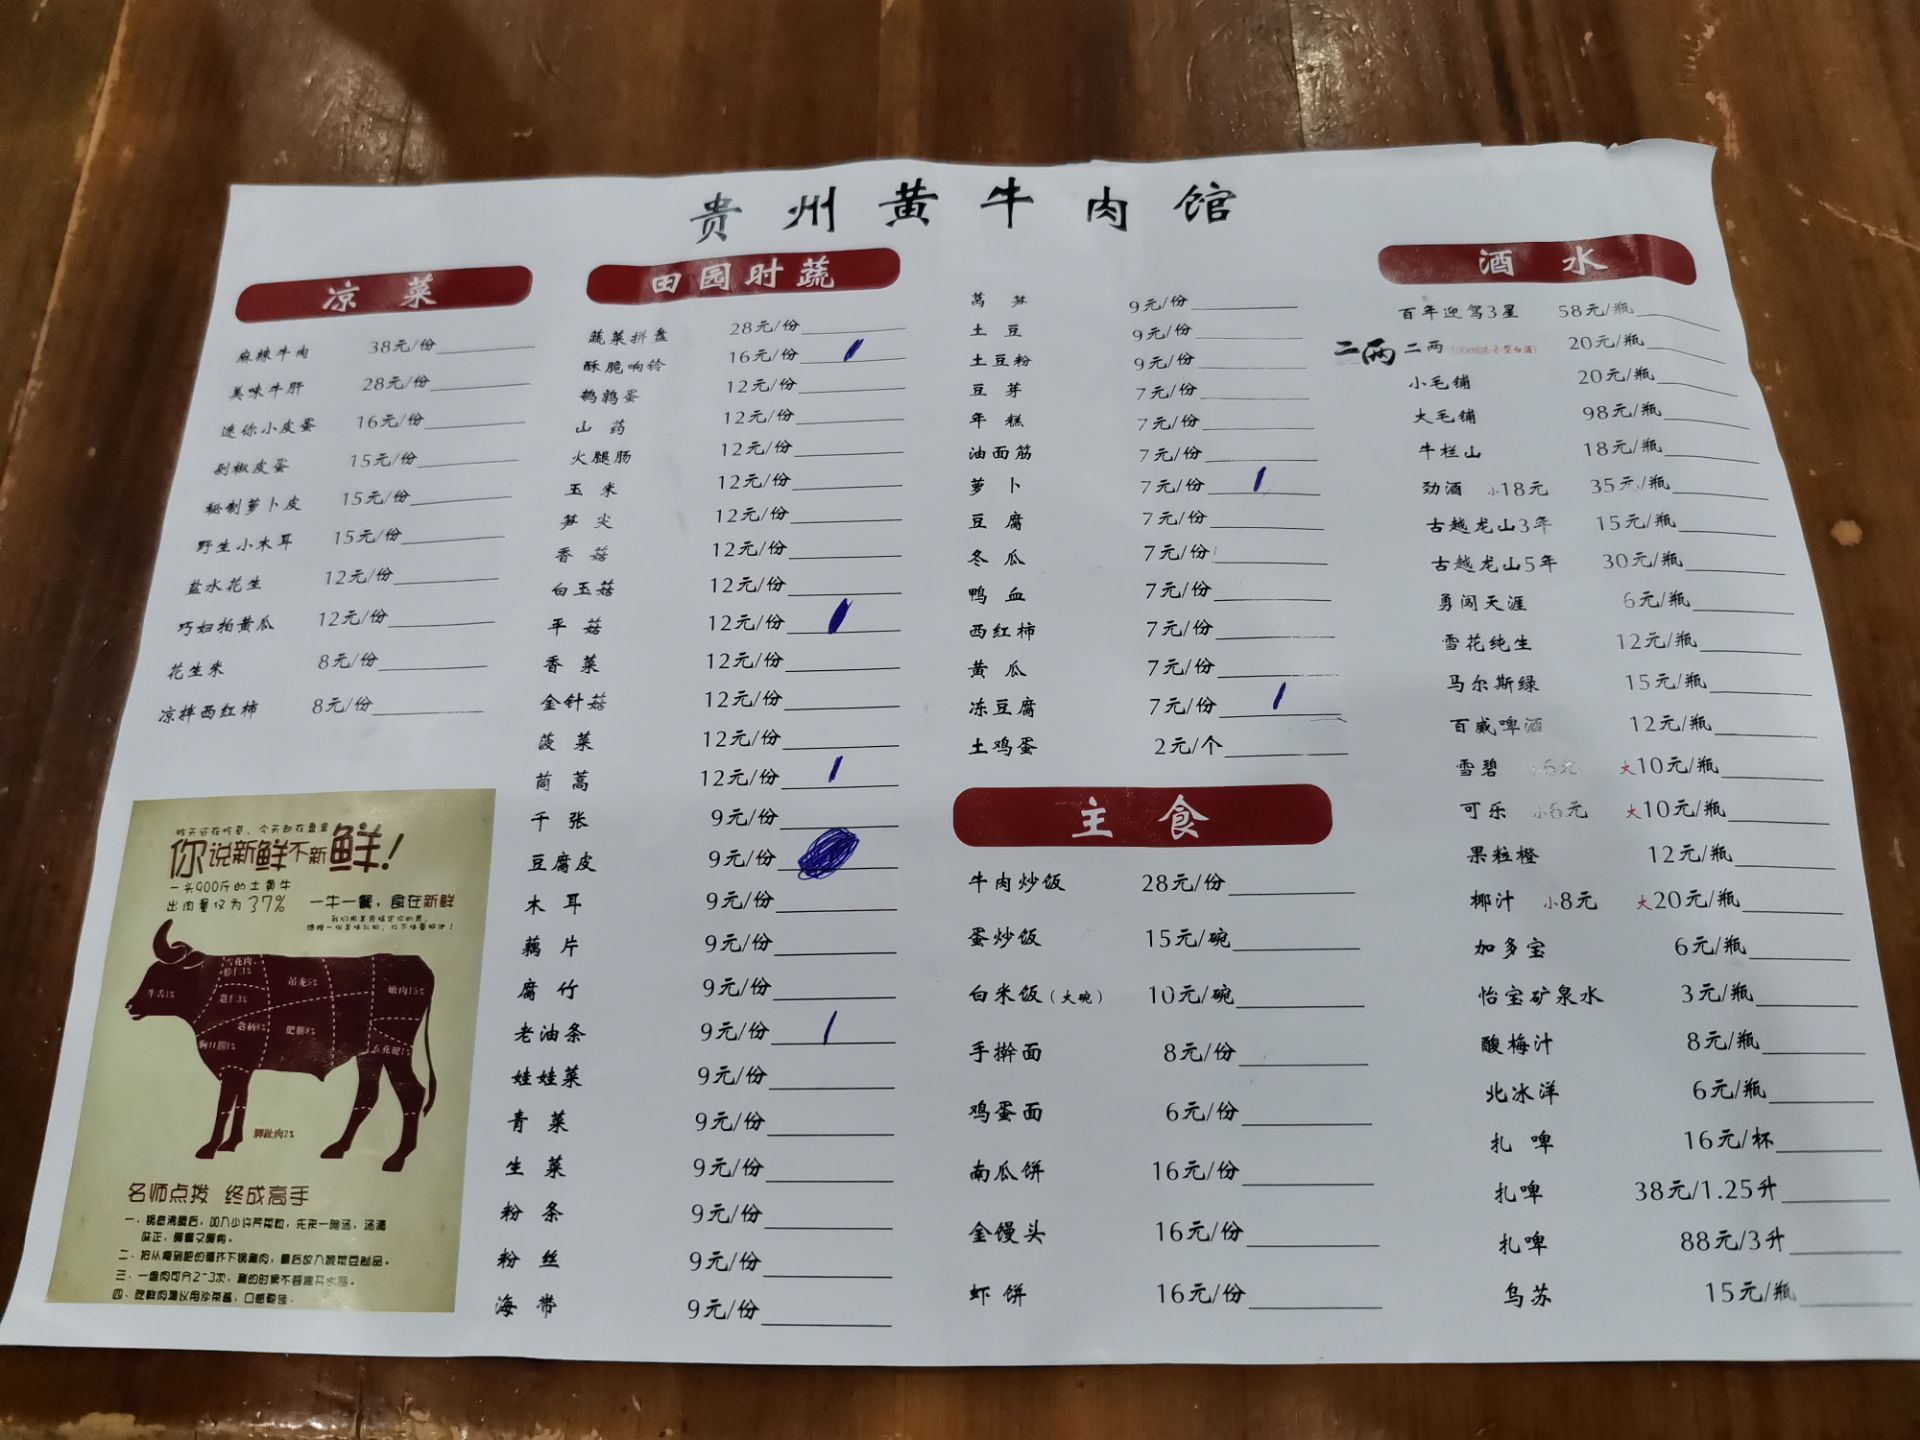 贵州黄牛肉馆
凉菜
麻辣牛肉 38元/份
美味牛肝 28元/份
迷你小皮蛋 16元/份
剁椒皮蛋 15元/份
秘制萝卜皮 15元/份
野生小木耳 15元/份
盐水花生 12元/份
巧妇拍黄瓜 12元/份
花生米 8元/份
凉拌西红柿 8元/份
昨天还在吃草，今天却在盘里
你说新鲜不新鲜！
一头900斤的土黄牛
出肉量仅为37%
一牛一餐，食在新鲜
雪花肉
牛舌1%
匙仁3%
吊龙5%
嫩肉15%
匙柄8%
肥胼8%
胸口朥1%
五花腱1%
脚趾肉2%
名师点拨 终成高手
一、锅底沸腾后，加入少许芹菜粒，先来一碗汤，汤清
味正，暖胃又暖身。
二、按从瘦到肥的循环下锅涮肉，最后放入蔬菜豆制品。
三、一盘肉可分2-3次，涮的时候不要离开水面。
四、吃鲜肉建议用沙茶酱，口感更佳。
田园时蔬
蔬菜拼盘 28元/份
酥脆响铃 16元/份
鹌鹑蛋 12元/份
山药 12元/份
火腿肠 12元/份
玉米 12元/份
笋尖 12元/份
香菇 12元/份
白玉菇 12元/份
平菇 12元/份
香菜 12元/份
金针菇 12元/份
菠菜 12元/份
茼蒿 12元/份
千张 9元/份
豆腐皮 9元/份
木耳 9元/份
藕片 9元/份
腐竹 9元/份
老油条 9元/份
娃娃菜 9元/份
青菜 9元/份
生菜 9元/份
粉条 9元/份
粉丝 9元/份
海带 9元/份
莴笋 9元/份
土豆 9元/份
土豆粉 9元/份
豆芽 7元/份
年糕 7元/份
油面筋 7元/份
萝卜 7元/份
豆腐 7元/份
冬瓜 7元/份
鸭血 7元/份
西红柿 7元/份
黄瓜 7元/份
冻豆腐 7元/份
土鸡蛋 2元/个
主食
牛肉炒饭 28元/份
蛋炒饭 15元/碗
白米饭（大碗） 10元/碗
手擀面 8元/份
鸡蛋面 6元/份
南瓜饼 16元/份
金馒头 16元/份
虾饼 16元/份
酒水
百年迎驾3星 58元/瓶
二两 二两 20元/瓶
小毛铺 20元/瓶
大毛铺 98元/瓶
牛栏山 18元/瓶
劲酒 小18元 35元/瓶
古越龙山3年 15元/瓶
古越龙山5年 30元/瓶
勇闯天涯 6元/瓶
雪花纯生 12元/瓶
马尔斯绿 15元/瓶
百威啤酒 12元/瓶
雪碧 小6元 大10元/瓶
可乐 小6元 大10元/瓶
果粒橙 12元/瓶
椰汁 小8元 大20元/瓶
加多宝 6元/瓶
怡宝矿泉水 3元/瓶
酸梅汁 8元/瓶
北冰洋 6元/瓶
扎啤 16元/杯
扎啤 38元/1.25升
扎啤 88元/3升
乌苏 15元/瓶